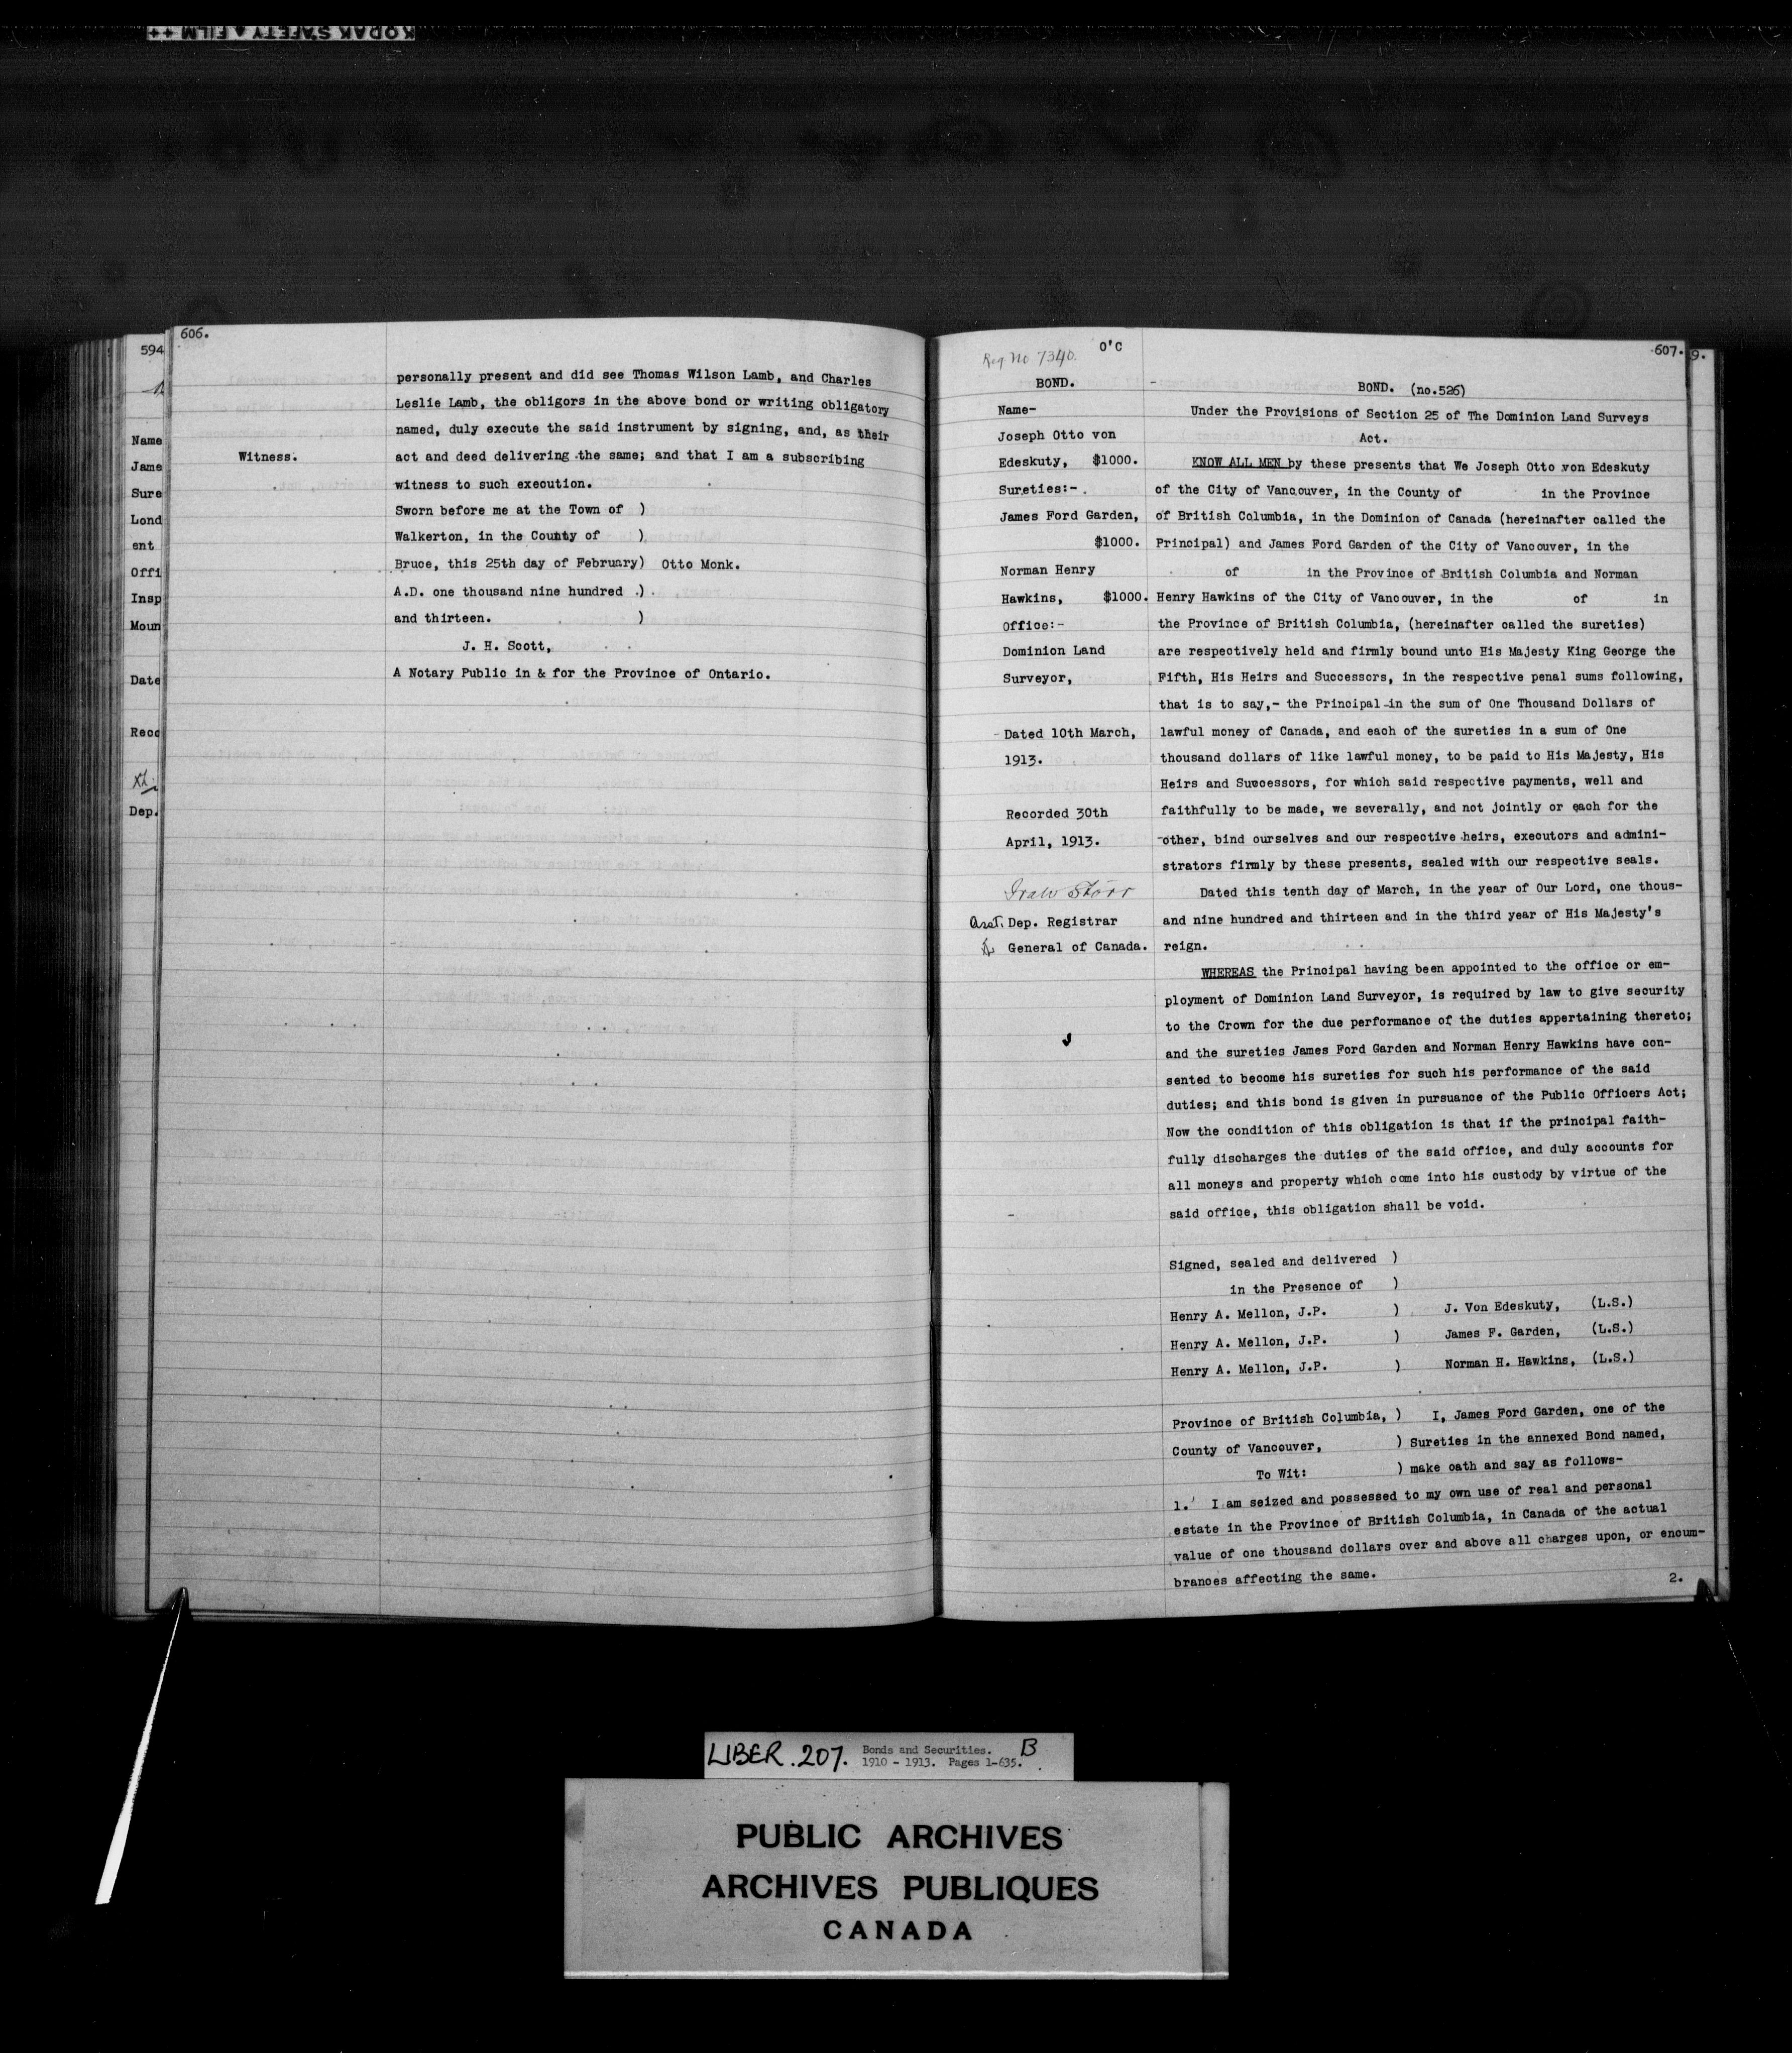 KODAK SAFETY FILM
594
Name
Jame
Sure
Lond
ent
Offi
Insp
Moun
Date
Reco
Dep.
606.
Witness.
personally present and did see Thomas Wilson Lamb, and Charles
Leslie Lamb, the obligors in the above bond or writing obligatory
named, duly execute the said instrument by signing, and, as their
act and deed delivering the same; and that I am a subscribing
witness to such execution.
Sworn before me at the Town of )
Walkerton, in the County of )
Bruce, this 25th day of February) Otto Monk.
A.D. one thousand nine hundred )
and thirteen. )
J. H. Scott,
A Notary Public in & for the Province of Ontario.
Reg No 7340.
O'C
BOND.
Name-
Joseph Otto von
Edeskuty, $1000.
Sureties:-
James Ford Garden,
$1000.
Norman Henry
Hawkins, $1000.
Office:-
Dominion Land
Surveyor,
Dated 10th March,
1913.
Recorded 30th
April, 1913.
Asst. Dep. Registrar
General of Canada.
607.
9.
BOND. (no.526)
Under the Provisions of Section 25 of The Dominion Land Surveys
Act.
KNOW ALL MEN by these presents that We Joseph Otto von Edeskuty
of the City of Vancouver, in the County of in the Province
of British Columbia, in the Dominion of Canada (hereinafter called the
Principal) and James Ford Garden of the City of Vancouver, in the
of in the Province of British Columbia and Norman
Henry Hawkins of the City of Vancouver, in the of in
the Province of British Columbia, (hereinafter called the sureties)
are respectively held and firmly bound unto His Majesty King George the
Fifth, His Heirs and Successors, in the respective penal sums following,
that is to say,- the Principal in the sum of One Thousand Dollars of
lawful money of Canada, and each of the sureties in a sum of One
thousand dollars of like lawful money, to be paid to His Majesty, His
Heirs and Successors, for which said respective payments, well and
faithfully to be made, we severally, and not jointly or each for the
other, bind ourselves and our respective heirs, executors and admini-
strators firmly by these presents, sealed with our respective seals.
Dated this tenth day of March, in the year of Our Lord, one thous-
and nine hundred and thirteen and in the third year of His Majesty's
reign.
WHEREAS the Principal having been appointed to the office or em-
ployment of Dominion Land Surveyor, is required by law to give security
to the Crown for the due performance of the duties appertaining thereto;
and the sureties James Ford Garden and Norman Henry Hawkins have con-
sented to become his sureties for such his performance of the said
duties; and this bond is given in pursuance of the Public Officers Act;
Now the condition of this obligation is that if the principal faith-
fully discharges the duties of the said office, and duly accounts for
all moneys and property which come into his custody by virtue of the
said office, this obligation shall be void.
Signed, sealed and delivered )
in the Presence of )
Henry A. Mellon, J.P. ) J. Von Edeskuty, (L.S.)
Henry A. Mellon, J.P. ) James F. Garden, (L.S.)
Henry A. Mellon, J.P. ) Norman H. Hawkins, (L.S.)
Province of British Columbia, ) I, James Ford Garden, one of the
County of Vancouver, ) Sureties in the annexed Bond named,
To Wit: ) make oath and say as follows-
1. I am seized and possessed to my own use of real and personal
estate in the Province of British Columbia, in Canada of the actual
value of one thousand dollars over and above all charges upon, or encum-
brances affecting the same.
2.
LIBER.207. Bonds and Securities. B
1910 - 1913. Pages 1-635.
PUBLIC ARCHIVES
ARCHIVES PUBLIQUES
CANADA